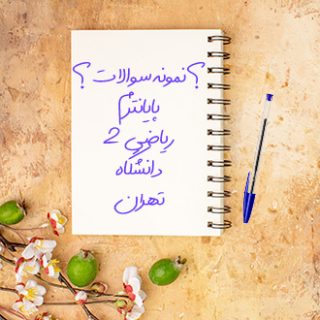 ؟ نمونه سوالات ؟
پایانترم
ریاضی 2
دانشگاه
تهران